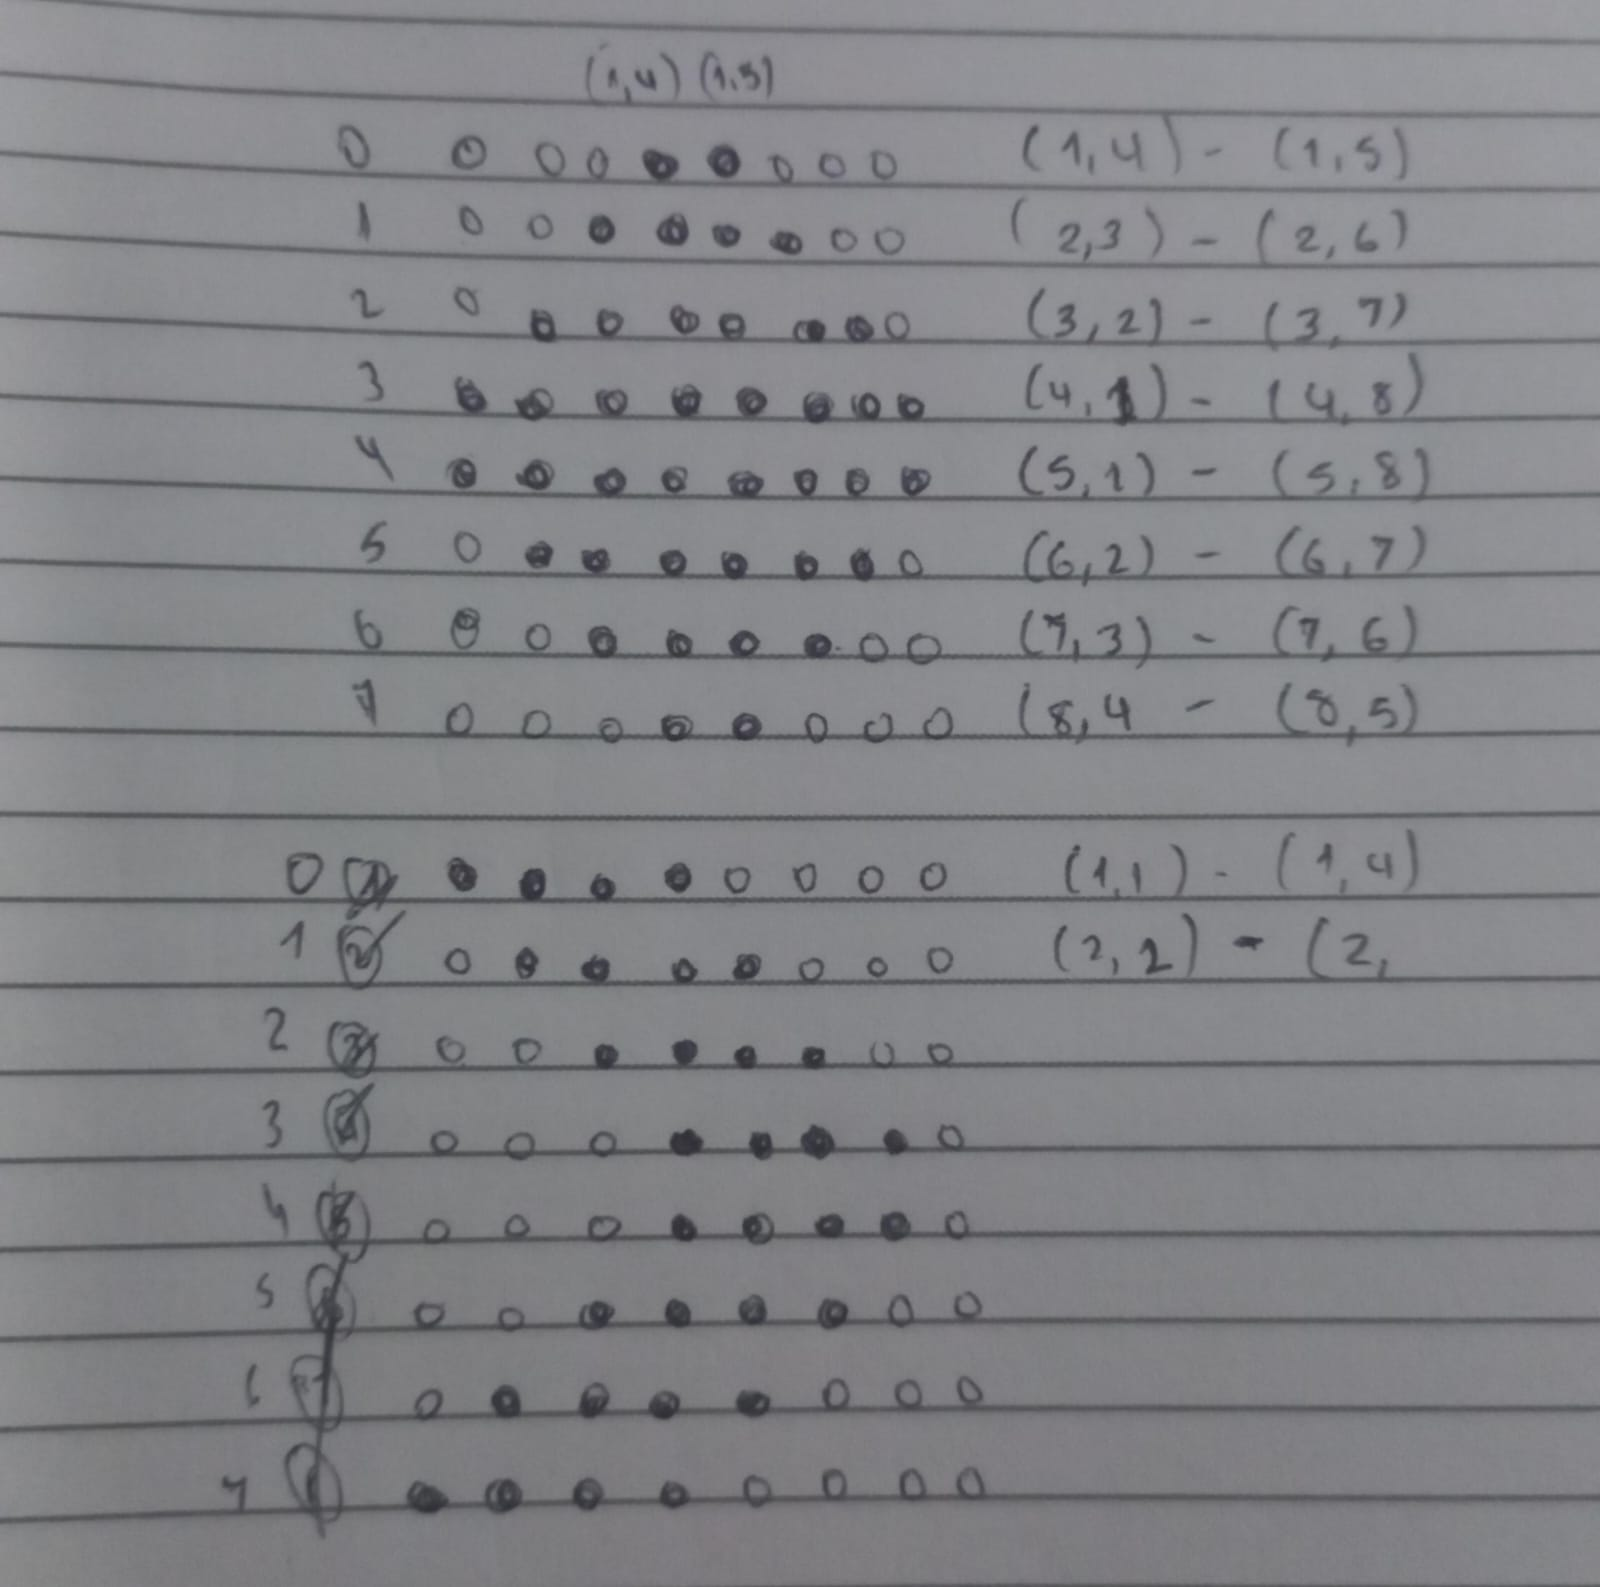 (1,4) (1,5)
0 (1,4) - (1,5)
1 (2,3) - (2,6)
2 (3,2) - (3,7)
3 (4,1) - (4,8)
4 (5,1) - (5,8)
5 (6,2) - (6,7)
6 (7,3) - (7,6)
7 (8,4 - (8,5)
0 (1,1) - (1,4)
1 (2,2) - (2,
2
3
4
5
6
7